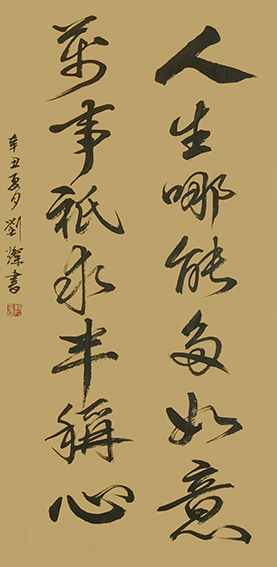 人生哪能多如意
萬事祇求半稱心
辛丑夏月劉燦書